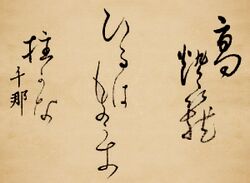 高燈籠
ひるはものうき
柱かな
千那